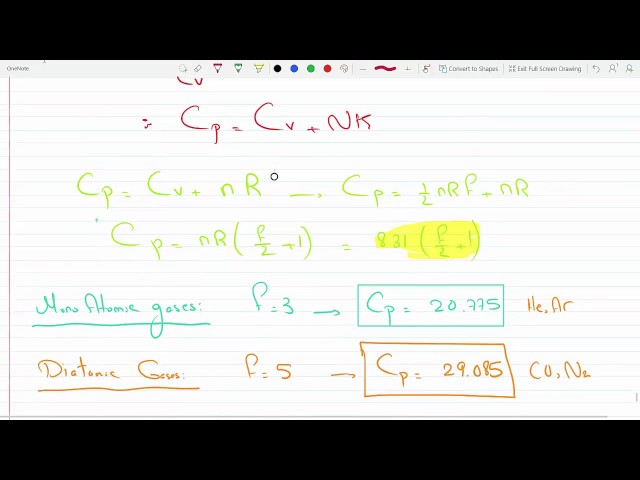 OneNote
Convert to Shapes Exit Full Screen Drawing Undo
Cv
∴ Cp = Cv + NK
Cp = Cv + nR → Cp = 1/2 nRf + nR
Cp = nR (f/2 + 1) = 8.31 (f/2 + 1)
MonoAtomic gases: f = 3 → Cp = 20.775 He, Ar
Diatomic Gases: f = 5 → Cp = 29.085 CO, N2